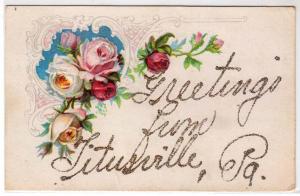 Greetings
from
Titusville, Pa.